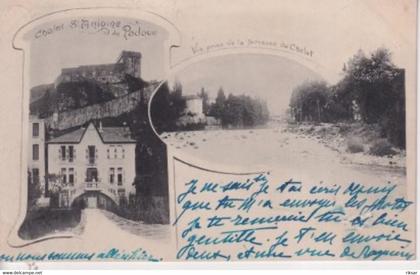 Chalet St Antoine
de Padoue
Vue prise de la Terrasse du Chalet
Je ne sais si je t'ai écris depuis
que tu m'a envoyés les photos
Je te remercie tu es bien
gentille. Je t'en envoie
Deux, et une vue de
nous sommes